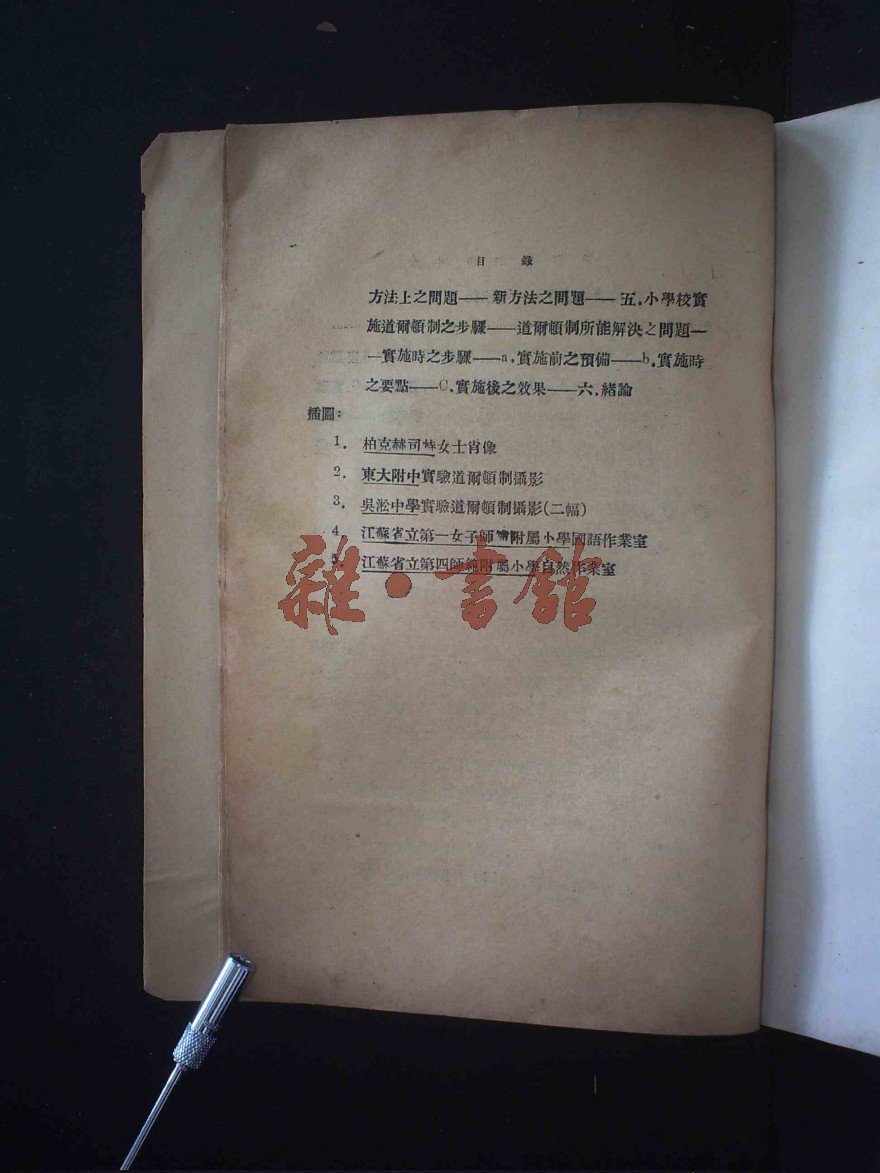 目 錄
方法上之問題——新方法之問題——五.小學校實
施道爾頓制之步驟——道爾頓制所能解決之問題—
—實施時之步驟——a.實施前之預備——b.實施時
之要點——C.實施後之效果——六.緒論
插圖：
1. 柏克赫司特女士肖像
2. 東大附中實驗道爾頓制攝影
3. 吳淞中學實驗道爾頓制攝影(二幅)
4 江蘇省立第一女子師範附屬小學國語作業室
5. 江蘇省立第四師範附屬小學自然作業室
雜·書館